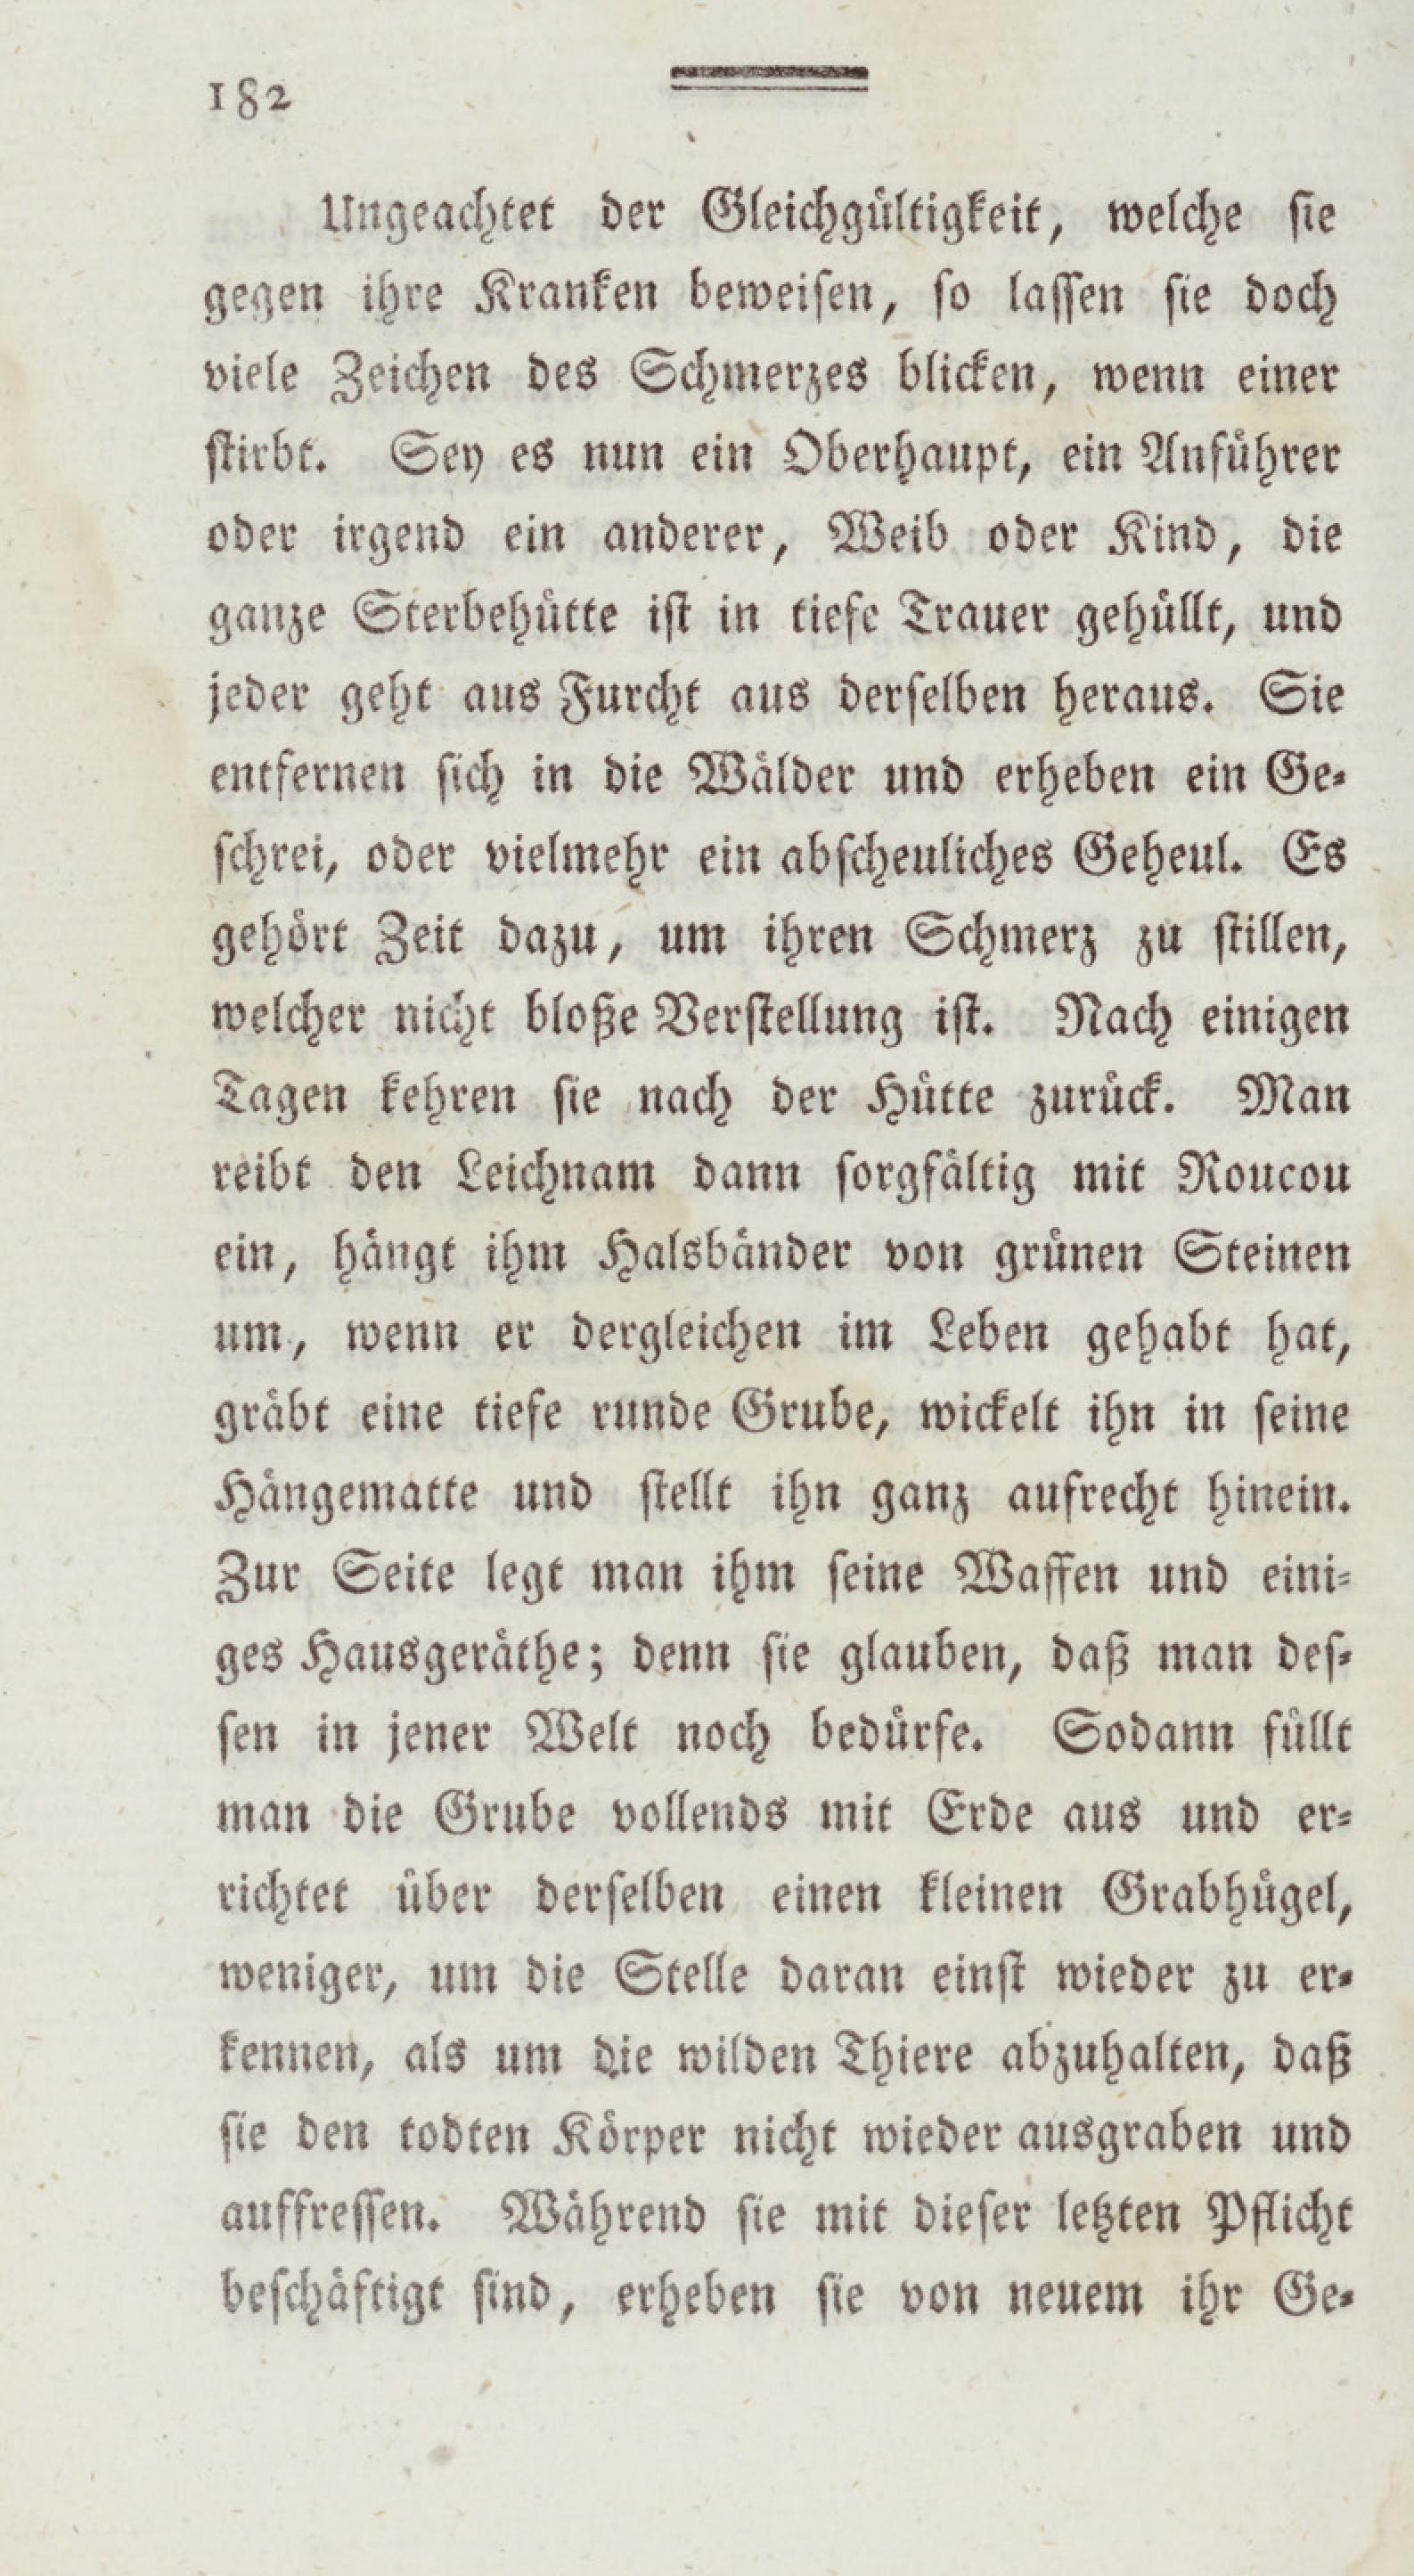 182
Ungeachtet der Gleichgültigkeit, welche sie
gegen ihre Kranken beweisen, so lassen sie doch
viele Zeichen des Schmerzes blicken, wenn einer
stirbt. Sey es nun ein Oberhaupt, ein Anführer
oder irgend ein anderer, Weib oder Kind, die
ganze Sterbehütte ist in tiefe Trauer gehüllt, und
jeder geht aus Furcht aus derselben heraus. Sie
entfernen sich in die Wälder und erheben ein Ge-
schrei, oder vielmehr ein abscheuliches Geheul. Es
gehört Zeit dazu, um ihren Schmerz zu stillen,
welcher nicht bloße Verstellung ist. Nach einigen
Tagen kehren sie nach der Hütte zurück. Man
reibt den Leichnam dann sorgfältig mit Roucou
ein, hängt ihm Halsbänder von grünen Steinen
um, wenn er dergleichen im Leben gehabt hat,
gräbt eine tiefe runde Grube, wickelt ihn in seine
Hängematte und stellt ihn ganz aufrecht hinein.
Zur Seite legt man ihm seine Waffen und eini-
ges Hausgeräthe; denn sie glauben, daß man des-
sen in jener Welt noch bedürfe. Sodann füllt
man die Grube vollends mit Erde aus und er-
richtet über derselben einen kleinen Grabhügel,
weniger, um die Stelle daran einst wieder zu er-
kennen, als um die wilden Thiere abzuhalten, daß
sie den todten Körper nicht wieder ausgraben und
auffressen. Während sie mit dieser letzten Pflicht
beschäftigt sind, erheben sie von neuem ihr Ge-